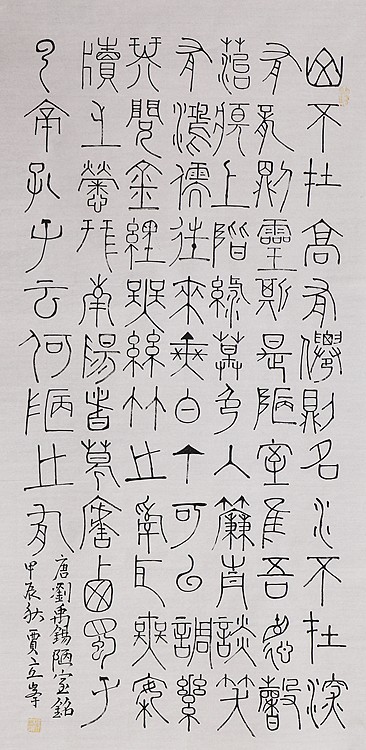 山不在高有僊則名水不在深
有龍則靈斯是陋室惟吾德馨
苔痕上階綠草色入簾青談笑
有鴻儒往來無白丁可以調素
琴閱金經無絲竹之亂耳無案
牘之勞形南陽諸葛廬西蜀子
云亭孔子云何陋之有
唐劉禹錫陋室銘
甲辰秋賈立峯